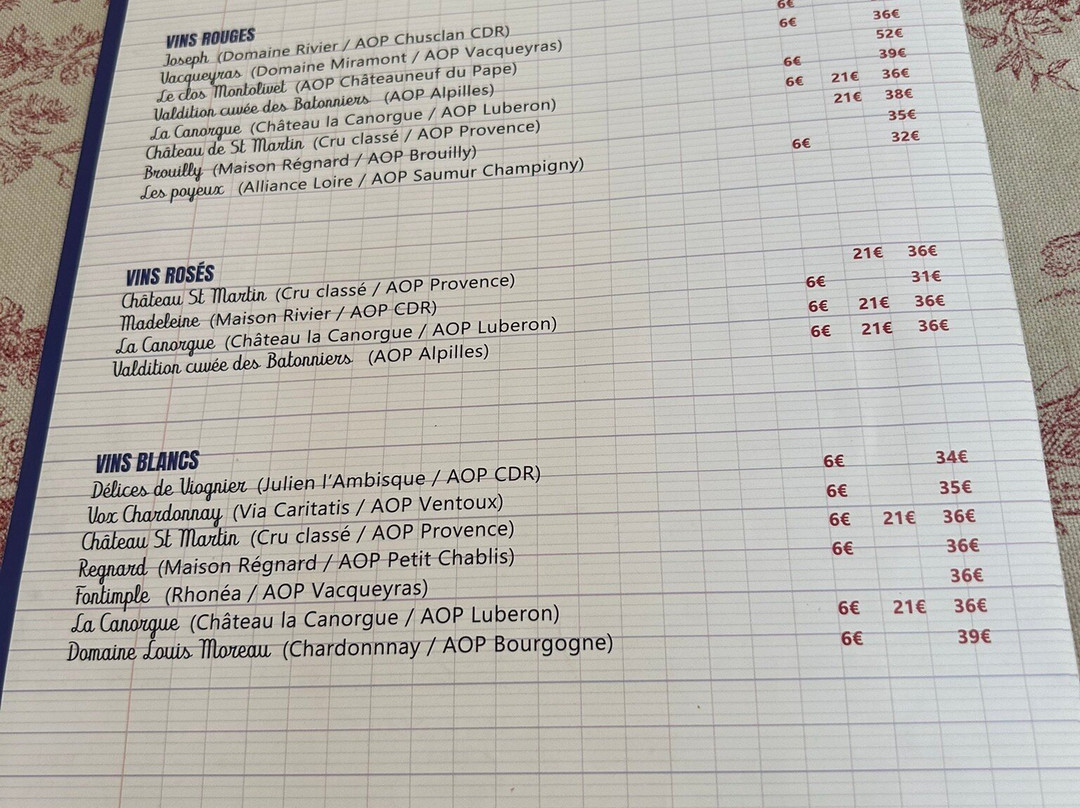 VINS ROUGES
Joseph (Domaine Rivier / AOP Chusclan CDR) 6€
Vacqueyras (Domaine Miramont / AOP Vacqueyras) 6€ 36€
Le clos Montolivet (AOP Châteauneuf du Pape) 52€
Valdition cuvée des Batonniers (AOP Alpilles) 6€ 39€
La Canorgue (Château la Canorgue / AOP Luberon) 6€ 21€ 36€
Château de St Martin (Cru classé / AOP Provence) 21€ 38€
Brouilly (Maison Régnard / AOP Brouilly) 35€
Les poyeux (Alliance Loire / AOP Saumur Champigny) 6€ 32€
VINS ROSÉS
Château St Martin (Cru classé / AOP Provence) 21€ 36€
Madeleine (Maison Rivier / AOP CDR) 6€ 31€
La Canorgue (Château la Canorgue / AOP Luberon) 6€ 21€ 36€
Valdition cuvée des Batonniers (AOP Alpilles) 6€ 21€ 36€
VINS BLANCS
Délices de Viognier (Julien l'Ambisque / AOP CDR) 6€ 34€
Vox Chardonnay (Via Caritatis / AOP Ventoux) 6€ 35€
Château St Martin (Cru classé / AOP Provence) 6€ 21€ 36€
Regnard (Maison Régnard / AOP Petit Chablis) 6€ 36€
Fontimple (Rhonéa / AOP Vacqueyras) 36€
La Canorgue (Château la Canorgue / AOP Luberon) 6€ 21€ 36€
Domaine Louis Moreau (Chardonnnay / AOP Bourgogne) 6€ 39€